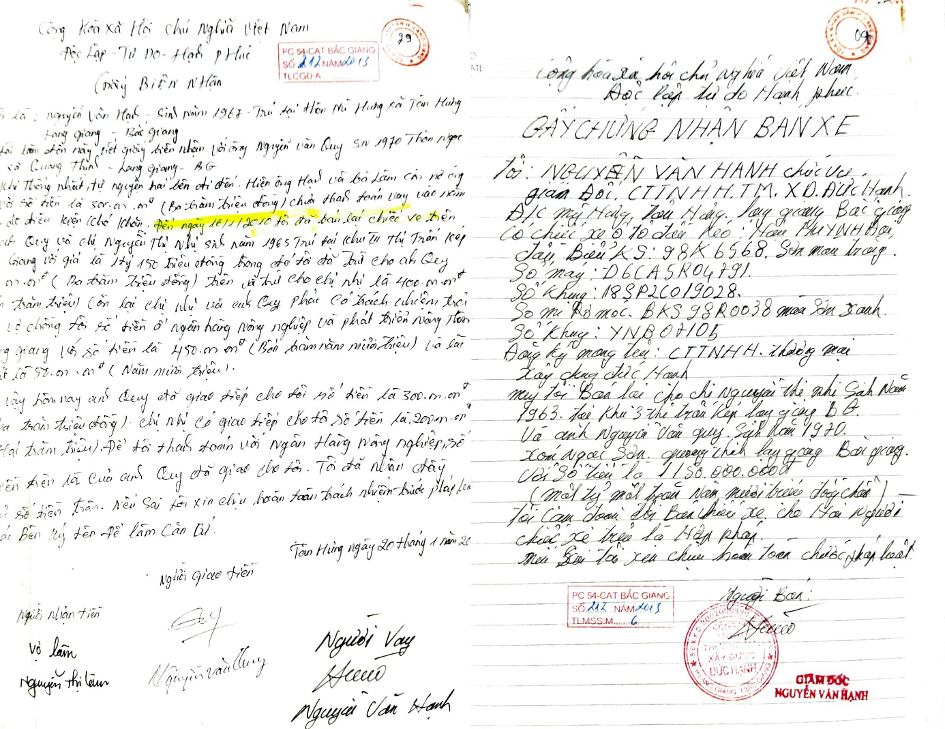 Cộng Hòa Xã Hội Chủ Nghĩa Việt Nam
Độc Lập - Tự Do - Hạnh Phúc
Giấy Biên Nhận
29
PC 54-CAT BẮC GIANG
SỐ 212 NĂM 2013
TLCGĐ.A
là: Nguyễn Văn Hạnh - Sinh năm 1967 - Trú tại Hưng xã Tân Hưng
Lạng giang - Bắc giang
tôi làm đơn này viết giấy biên nhận với ông Nguyễn Văn Quy SN 1970 Thôn Ngọc
xã Quang Thịnh - Lạng giang - BG
Thống nhất, tự nguyện hai bên đi đến. Hiện ông Hạnh và bà Lâm còn nợ ông
số tiền là 300.m.m đ (Ba trăm triệu đồng) chưa thanh toán vay vào năm
điều kiện khó khăn. Đến ngày 16/1/2010 tôi đã bán lại chiếc xe trên
Quy với chị Nguyễn Thị Nhị Sn năm 1965 Trú tại khu Thị Trấn Kép
Giang với giá là 1 tỷ 150 triệu đồng trong đó tôi đã trừ cho anh Quy
m.m đ (Ba trăm triệu đồng) Tiền và trừ cho chị nhị là 400.m.m đ
trăm triệu) Còn lại chị nhị và anh Quy phải có trách nhiệm trả
vợ chồng tôi số tiền ở ngân hàng nông nghiệp và phát triển nông thôn
giang với số tiền là 450.m.m đ (Bốn trăm năm mươi triệu) và lãi
là 50.m.m đ (Năm mươi triệu).
vậy hôm nay anh Quy đã giao tiếp cho tôi số tiền là 300.m.m đ
trăm triệu đồng). chị nhị có giao tiếp cho tôi số tiền là 200.m.m đ
trăm triệu) Để tôi thanh toán với Ngân Hàng Nông nghiệp, số
tiền trên là của anh Quy đã giao cho tôi. Tôi đã nhận đầy
số tiền trên. Nếu sai tôi xin chịu hoàn toàn trách nhiệm trước pháp
bên ký tên để làm Căn Cứ.
Tân Hưng ngày 20 tháng 1 năm 20
Người giao tiền
Người nhận tiền
Vợ Lâm
Nguyễn Thị Lâm
Nguyễn Văn Quy
Người Vay
Nguyễn Văn Hạnh
09
Cộng hòa xã hội chủ nghĩa Việt Nam
Độc lập tự do Hạnh phúc.
GẤY CHỨNG NHẬN BAN XE
Tôi: NGUYỄN VĂN HẠNH chức vụ
giám Đốc. CTTNHH.TM.XD.ĐỨC HẠNH.
Đ/c mỹ Hưng, tân Hưng. lạng giang Bắc giang
Có chiếc xe ô tô đầu kéo:
Biển KS: 98K 6568. Sơn màu trắng.
Số máy: D6CA5R04791.
Số khung: 18SP2C019028.
Sơ mi Rơ moóc. BKS 98R0038 màu Sơn xanh.
Số Khung: YNB07105
Đăng ký mang tên: CTTNHH. thương mại
xây dựng đức Hạnh
nay tôi Bán lại cho chị Nguyễn thị nhị Sinh Năm
1963. tại khu 3 thị trấn kép lạng giang BG.
Và anh Nguyễn Văn quy Sinh Năm 1970.
Xóm Ngọc Sơn. quang thịnh lạng giang Bắc giang.
Với Số tiền là 1150.000.000đ
(một tỷ một trăm Năm mươi triệu đồng chẵn)
tôi Cam đoan đã Bán chiếc xe cho Hai Người
chiếc xe trên là Hợp pháp.
tôi xin chịu hoàn toàn trước pháp luật.
Người Bán:
PC 54-CAT BẮC GIANG
SỐ 212 NĂM 2013
TLMSS:M......6
XÂY DỰNG
ĐỨC HẠNH
GIÁM ĐỐC
NGUYỄN VĂN HẠNH